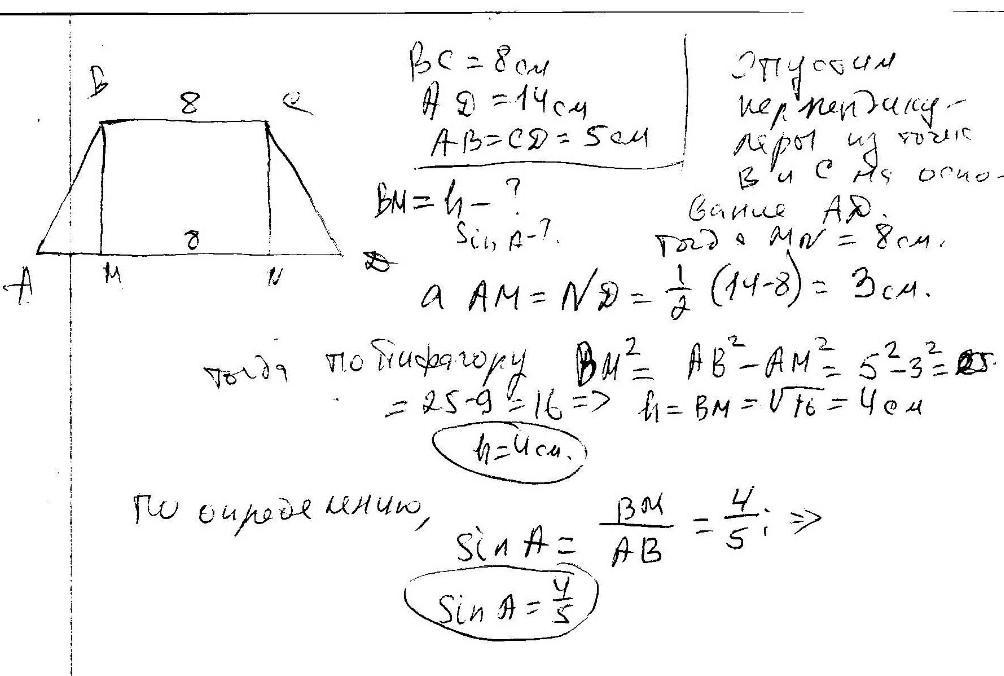 B 8 C
A M 8 N D
BC = 8 см
AD = 14 см
AB = CD = 5 см
BM = h - ?
Sin A - ?.
Опустим
перпендику-
ляры из точек
B и C на осно-
вание AD.
тогда MN = 8 см.
а AM = ND = 1/2 (14-8) = 3 см.
тогда по Пифагору BM² = AB² - AM² = 5² - 3² =
= 25-9 = 16 => h = BM = √16 = 4 см
h = 4 см.
По определению,
Sin A = BM/AB = 4/5; =>
Sin A = 4/5